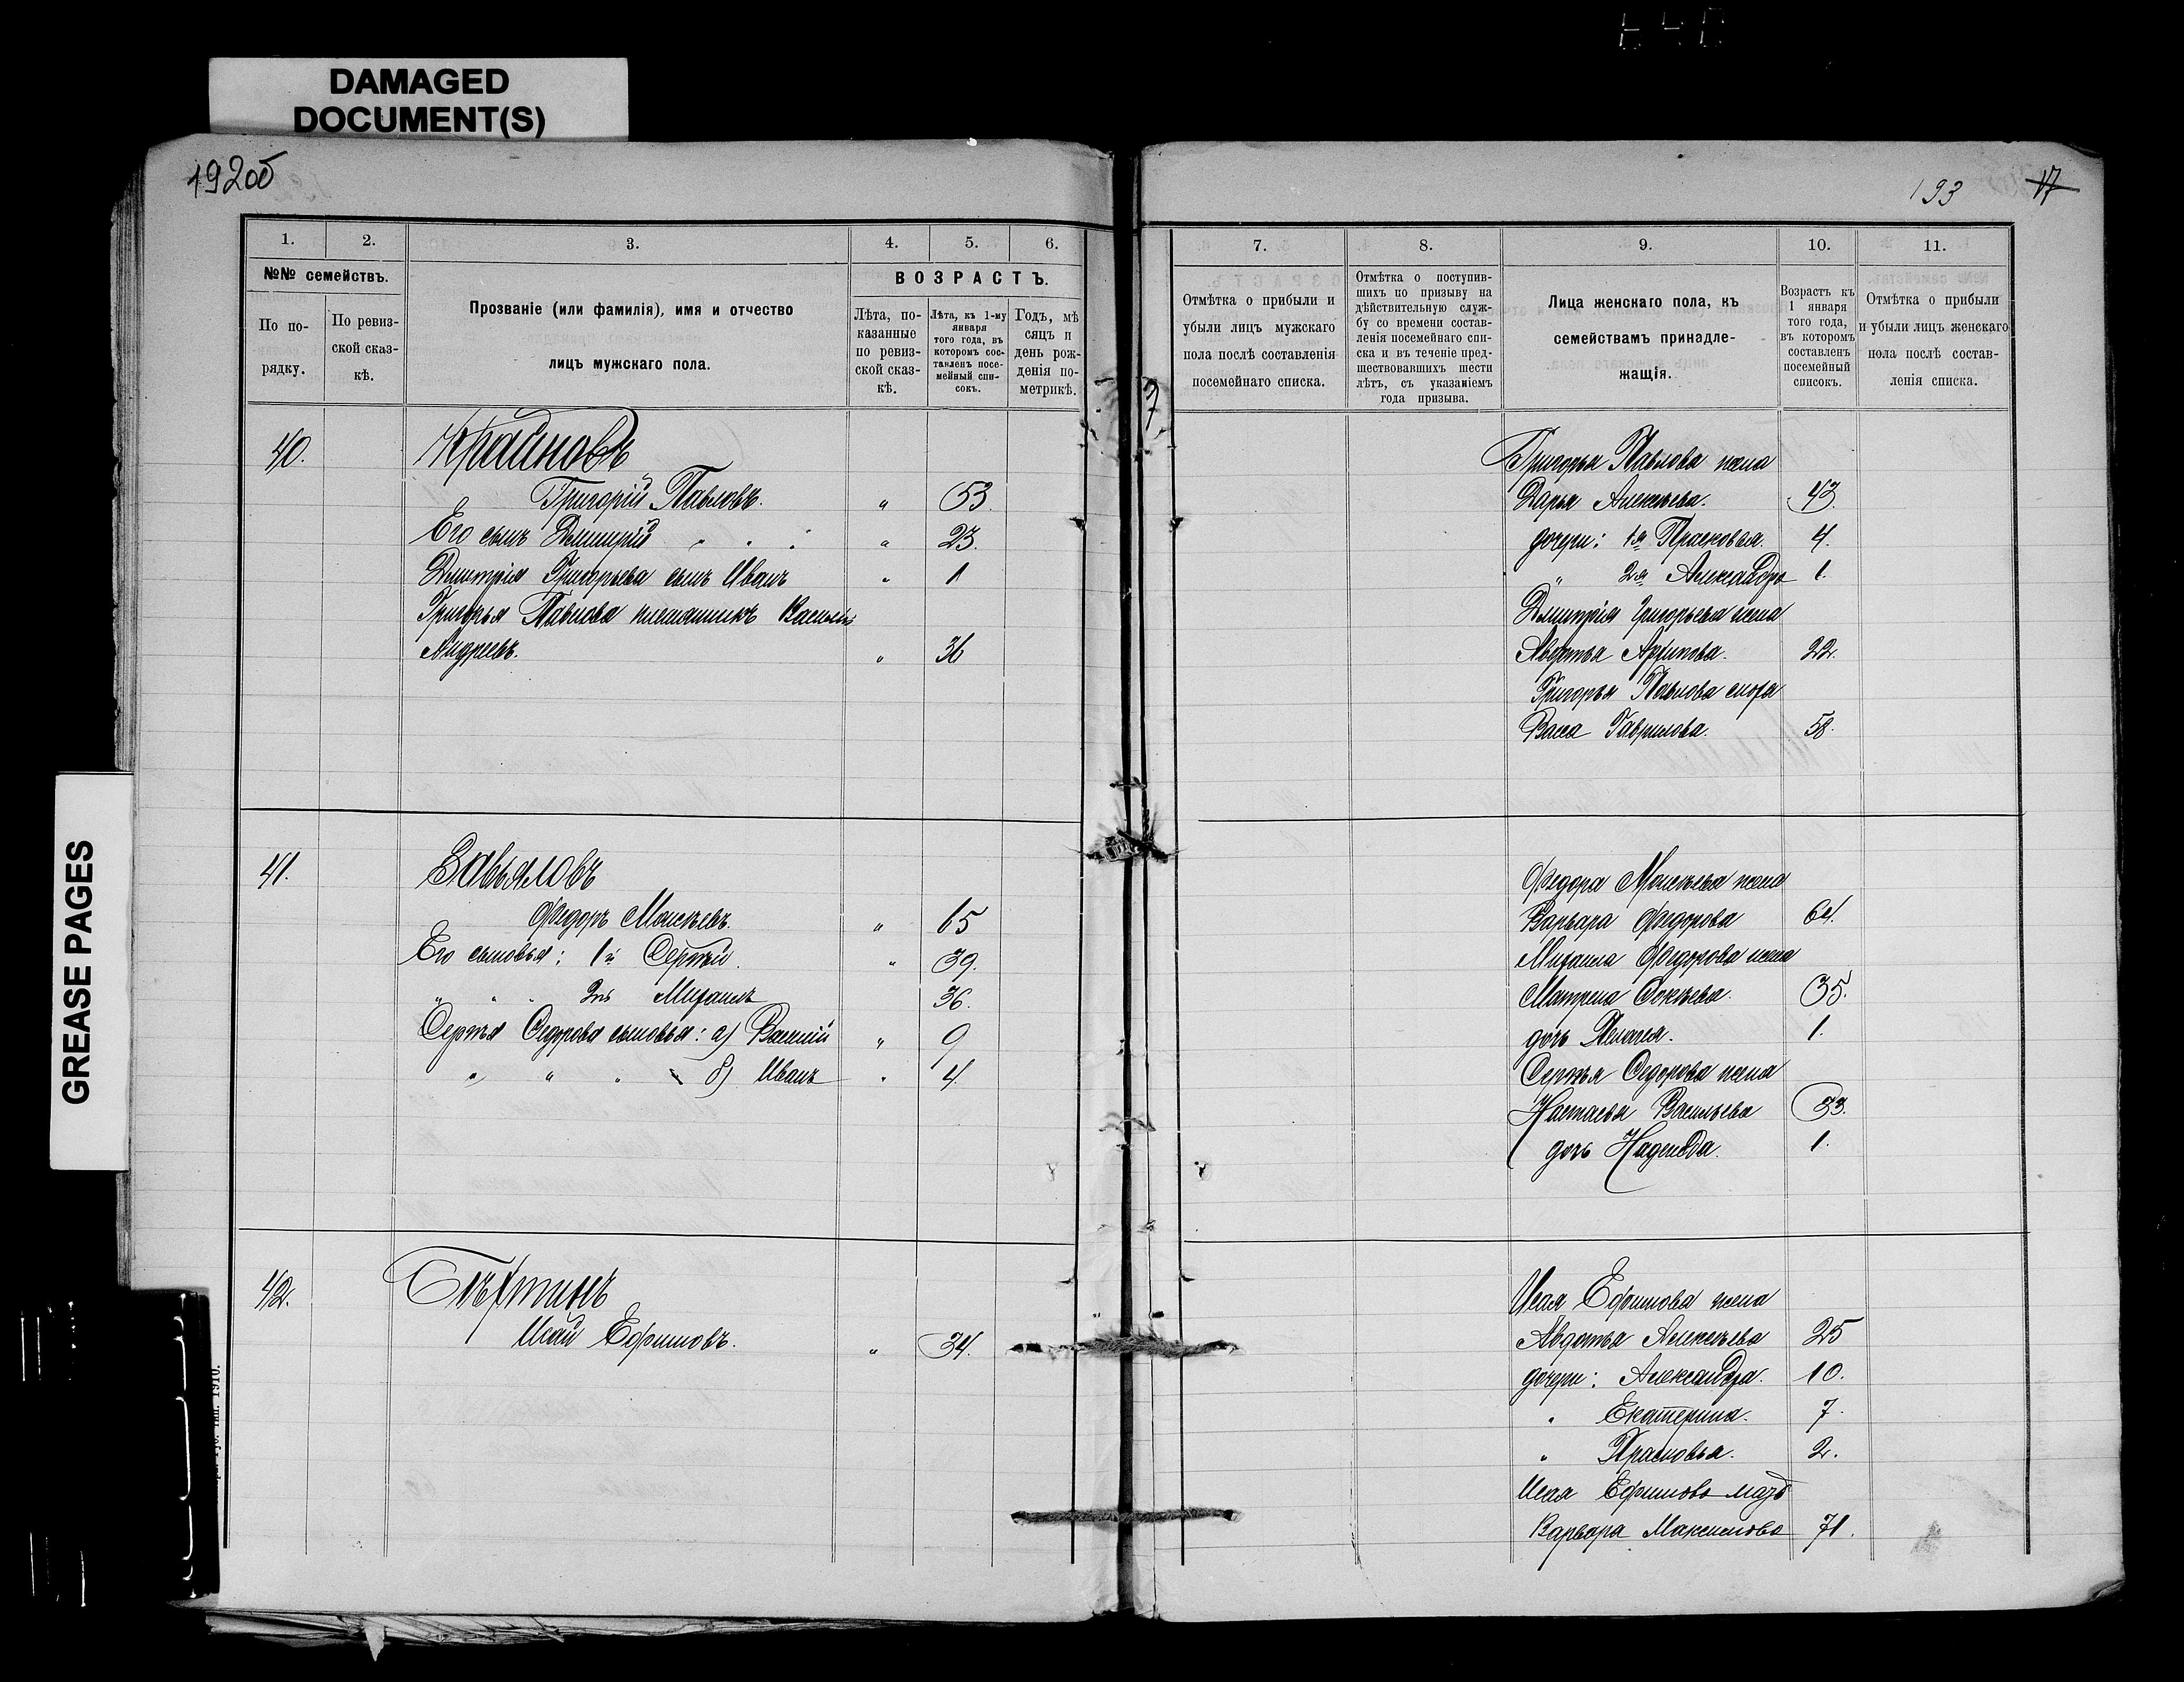 DAMAGED
DOCUMENT(S)
GREASE PAGES
192об
1.
2.
3.
4.
5.
6.
№№ семействъ.
По по-
рядку.
По ревиз-
ской сказ-
кѣ.
Прозваніе (или фамилія), имя и отчество
лицъ мужскаго пола.
ВОЗРАСТЪ.
Лѣта, по-
казанные
по ревиз-
ской сказ-
кѣ.
Лѣта, къ 1-му
января
того года, въ
которомъ сос-
тавленъ посе-
мейный спи-
сокъ.
Годъ, мѣ
сяцъ и
день рож-
денія по-
метрикѣ.
40. Крайновъ
Григорій Павловъ. " 53.
Его сынъ Дмитрій " 23.
Дмитрія Григорьева сынъ Иванъ " 1
Григорья Павлова племянникъ Василій
Андреевъ. " 36
41. Завьяловъ
Федоръ Моисѣевъ. " 65
Его сыновья: 1й Сергѣй. " 39.
" " 2й Михаилъ 36.
Сергѣя Федорова сыновья: а) Василій " 9
" " " б) Иванъ " 4.
42.
Исай Ефимовъ. " 34.
тип. 1910.
193 17
7.
8.
9.
10.
11.
Отмѣтка о прибыли и
убыли лицъ мужскаго
пола послѣ составленія
посемейнаго списка.
Отмѣтка о поступив-
шихъ по призыву на
дѣйствительную служ-
бу со времени состав-
ленія посемейнаго спи-
ска и въ теченіе пред-
шествовавшихъ шести
лѣтъ, съ указаніемъ
года призыва.
Лица женскаго пола, къ
семействамъ принадле-
жащія.
Возрастъ къ
1 января
того года,
въ которомъ
составленъ
посемейный
списокъ.
Отмѣтка о прибыли
и убыли лицъ женскаго
пола послѣ состав-
ленія списка.
Григорья Павлова жена
Дарья Алексѣева. 43.
дочери: 1я Прасковья. 4.
" 2я Александра 1.
Дмитрія Григорьева жена
Авдотья Архипова. 22.
Григорья Павлова сноха
Васса Гаврилова. 58.
Федора Моисѣева жена
Варвара Федорова 64.
Михаила Федорова жена
Матрена Фокѣева. 35.
дочь Пелагея. 1.
Сергѣя Федорова жена
Настасья Васильева 33.
дочь Надежда. 1.
Исая Ефимова жена
Авдотья Алексѣева 25
дочери: Александра. 10.
" Екатерина. 7.
" Прасковья. 2.
Исая Ефимова мать
Варвара Максимова 71.